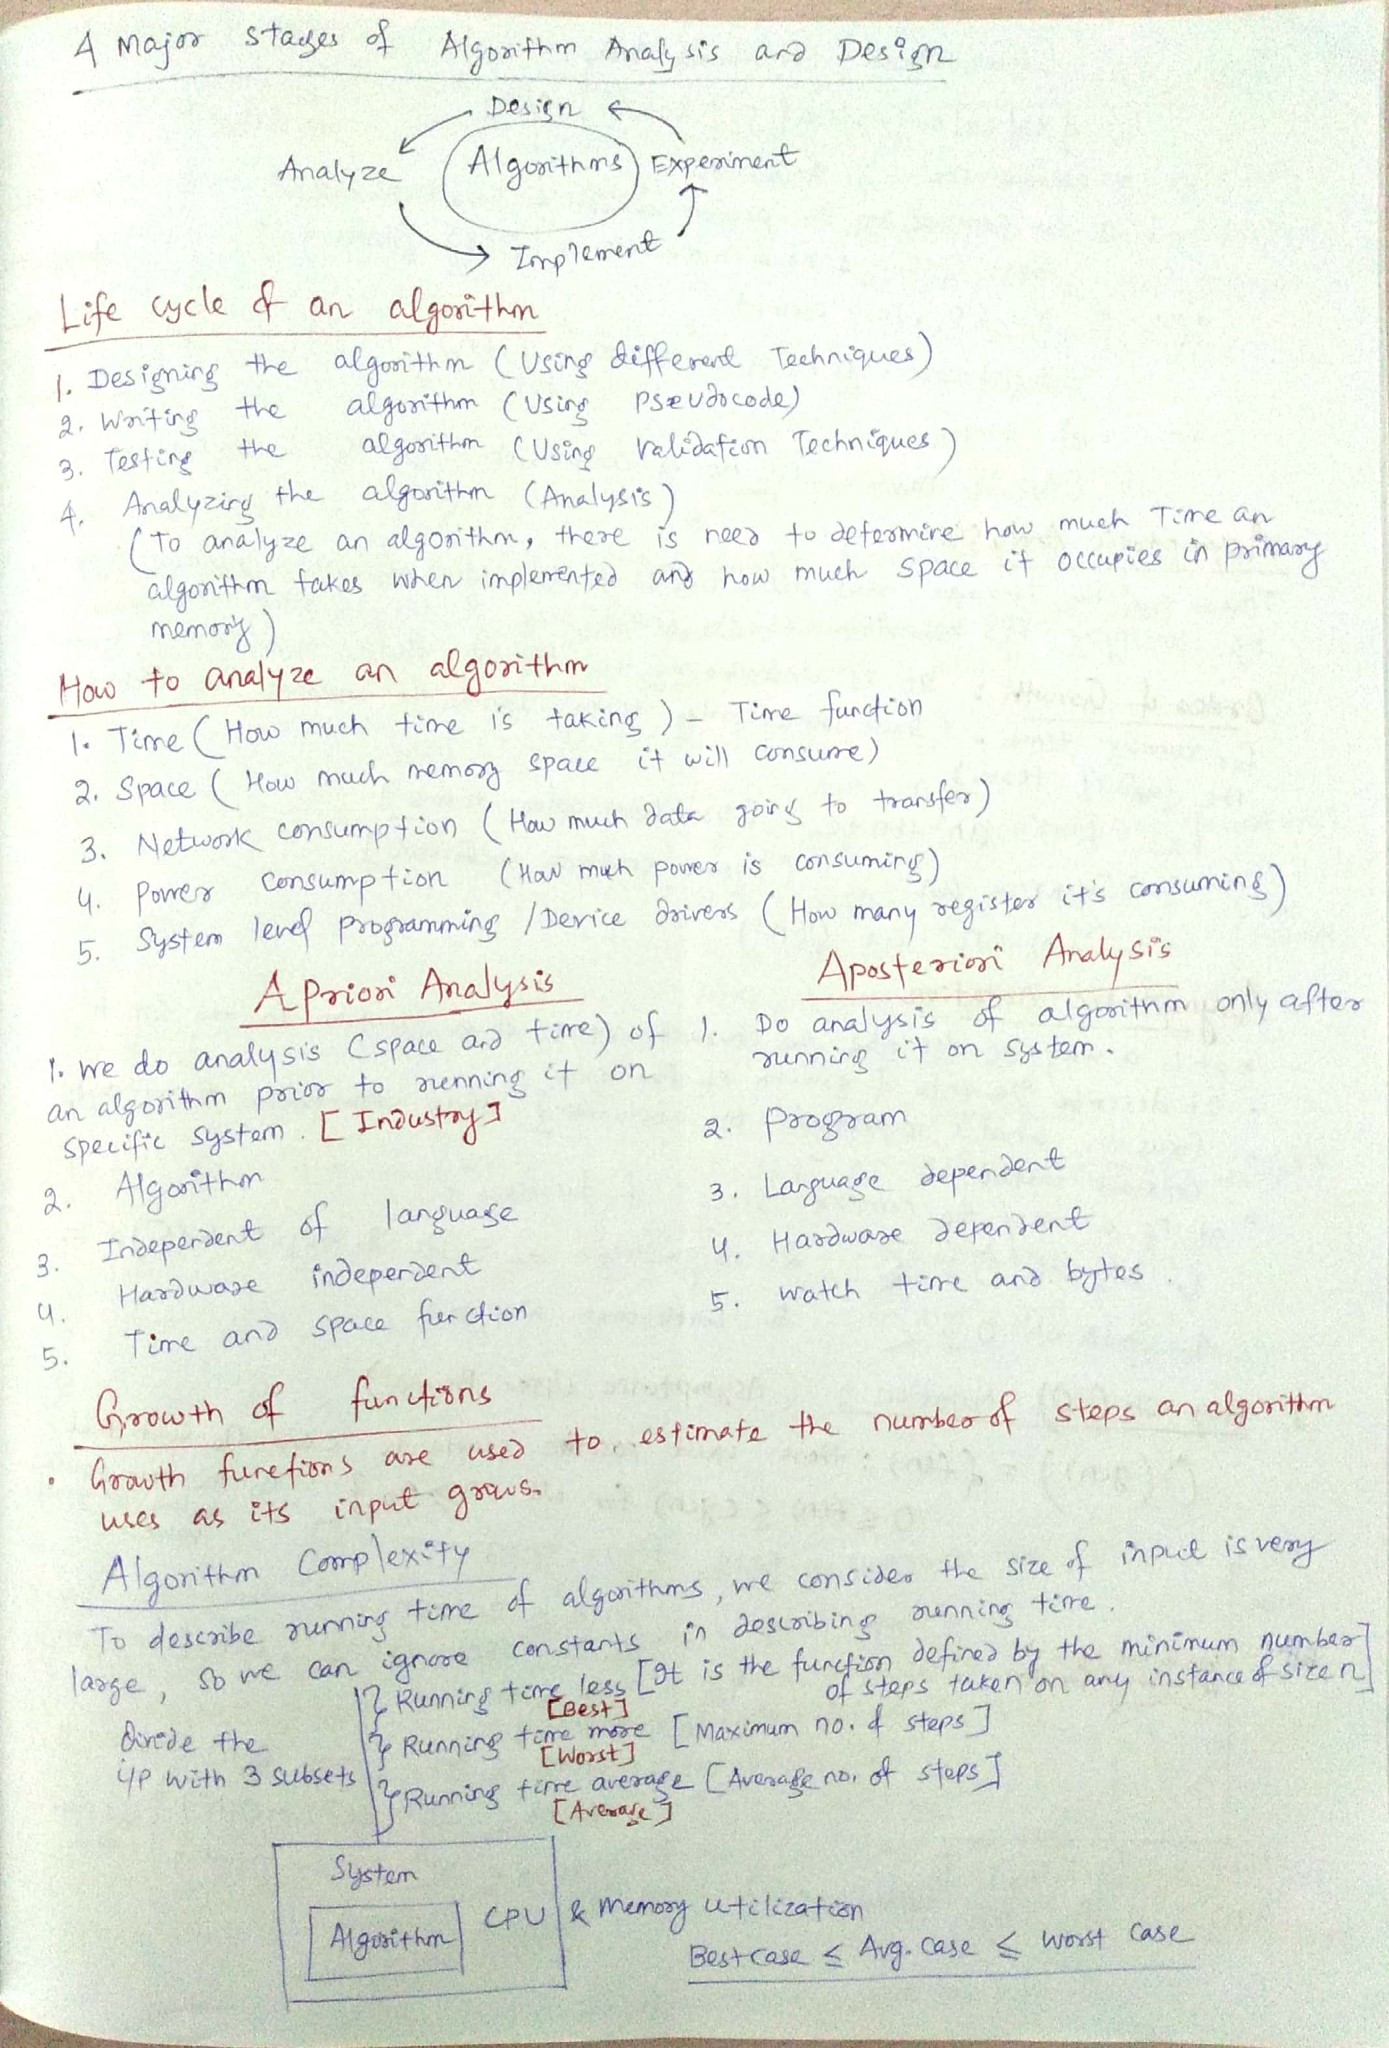 4 Major stages of Algorithm Analysis and Design
Design
Analyze
Algorithms
Experiment
Implement
Life cycle of an algorithm
1. Designing the algorithm (Using different Techniques)
2. Writing the algorithm (Using Pseudocode)
3. Testing the algorithm (Using Validation Techniques)
4. Analyzing the algorithm (Analysis)
(To analyze an algorithm, there is need to determine how much Time an
algorithm takes when implemented and how much space it occupies in primary
memory)
How to analyze an algorithm
1. Time (How much time is taking) - Time function
2. Space (How much memory space it will consume)
3. Network consumption (How much data going to transfer)
4. Power Consumption (How much power is consuming)
5. System level programming / Device drivers (How many register it's consuming)
Apriori Analysis
1. We do analysis (space and time) of
an algorithm prior to running it on
specific system. [Industry]
2. Algorithm
3. Independent of language
4. Hardware independent
5. Time and space function
Aposteriori Analysis
1. Do analysis of algorithm only after
running it on system.
2. Program
3. Language dependent
4. Hardware dependent
5. Watch time and bytes.
Growth of functions
• Growth functions are used to estimate the number of steps an algorithm
uses as its input grows.
Algorithm Complexity
To describe running time of algorithms, we consider the size of input is very
large, so we can ignore constants in describing running time.
Divide the
i/p with 3 subsets
Running time less [It is the function defined by the minimum number
of steps taken on any instance of size n]
[Best]
Running time more [Maximum no. of steps]
[Worst]
Running time average [Average no. of steps]
[Average]
System
Algorithm
CPU & Memory utilization
Best case ≤ Avg. case ≤ Worst case